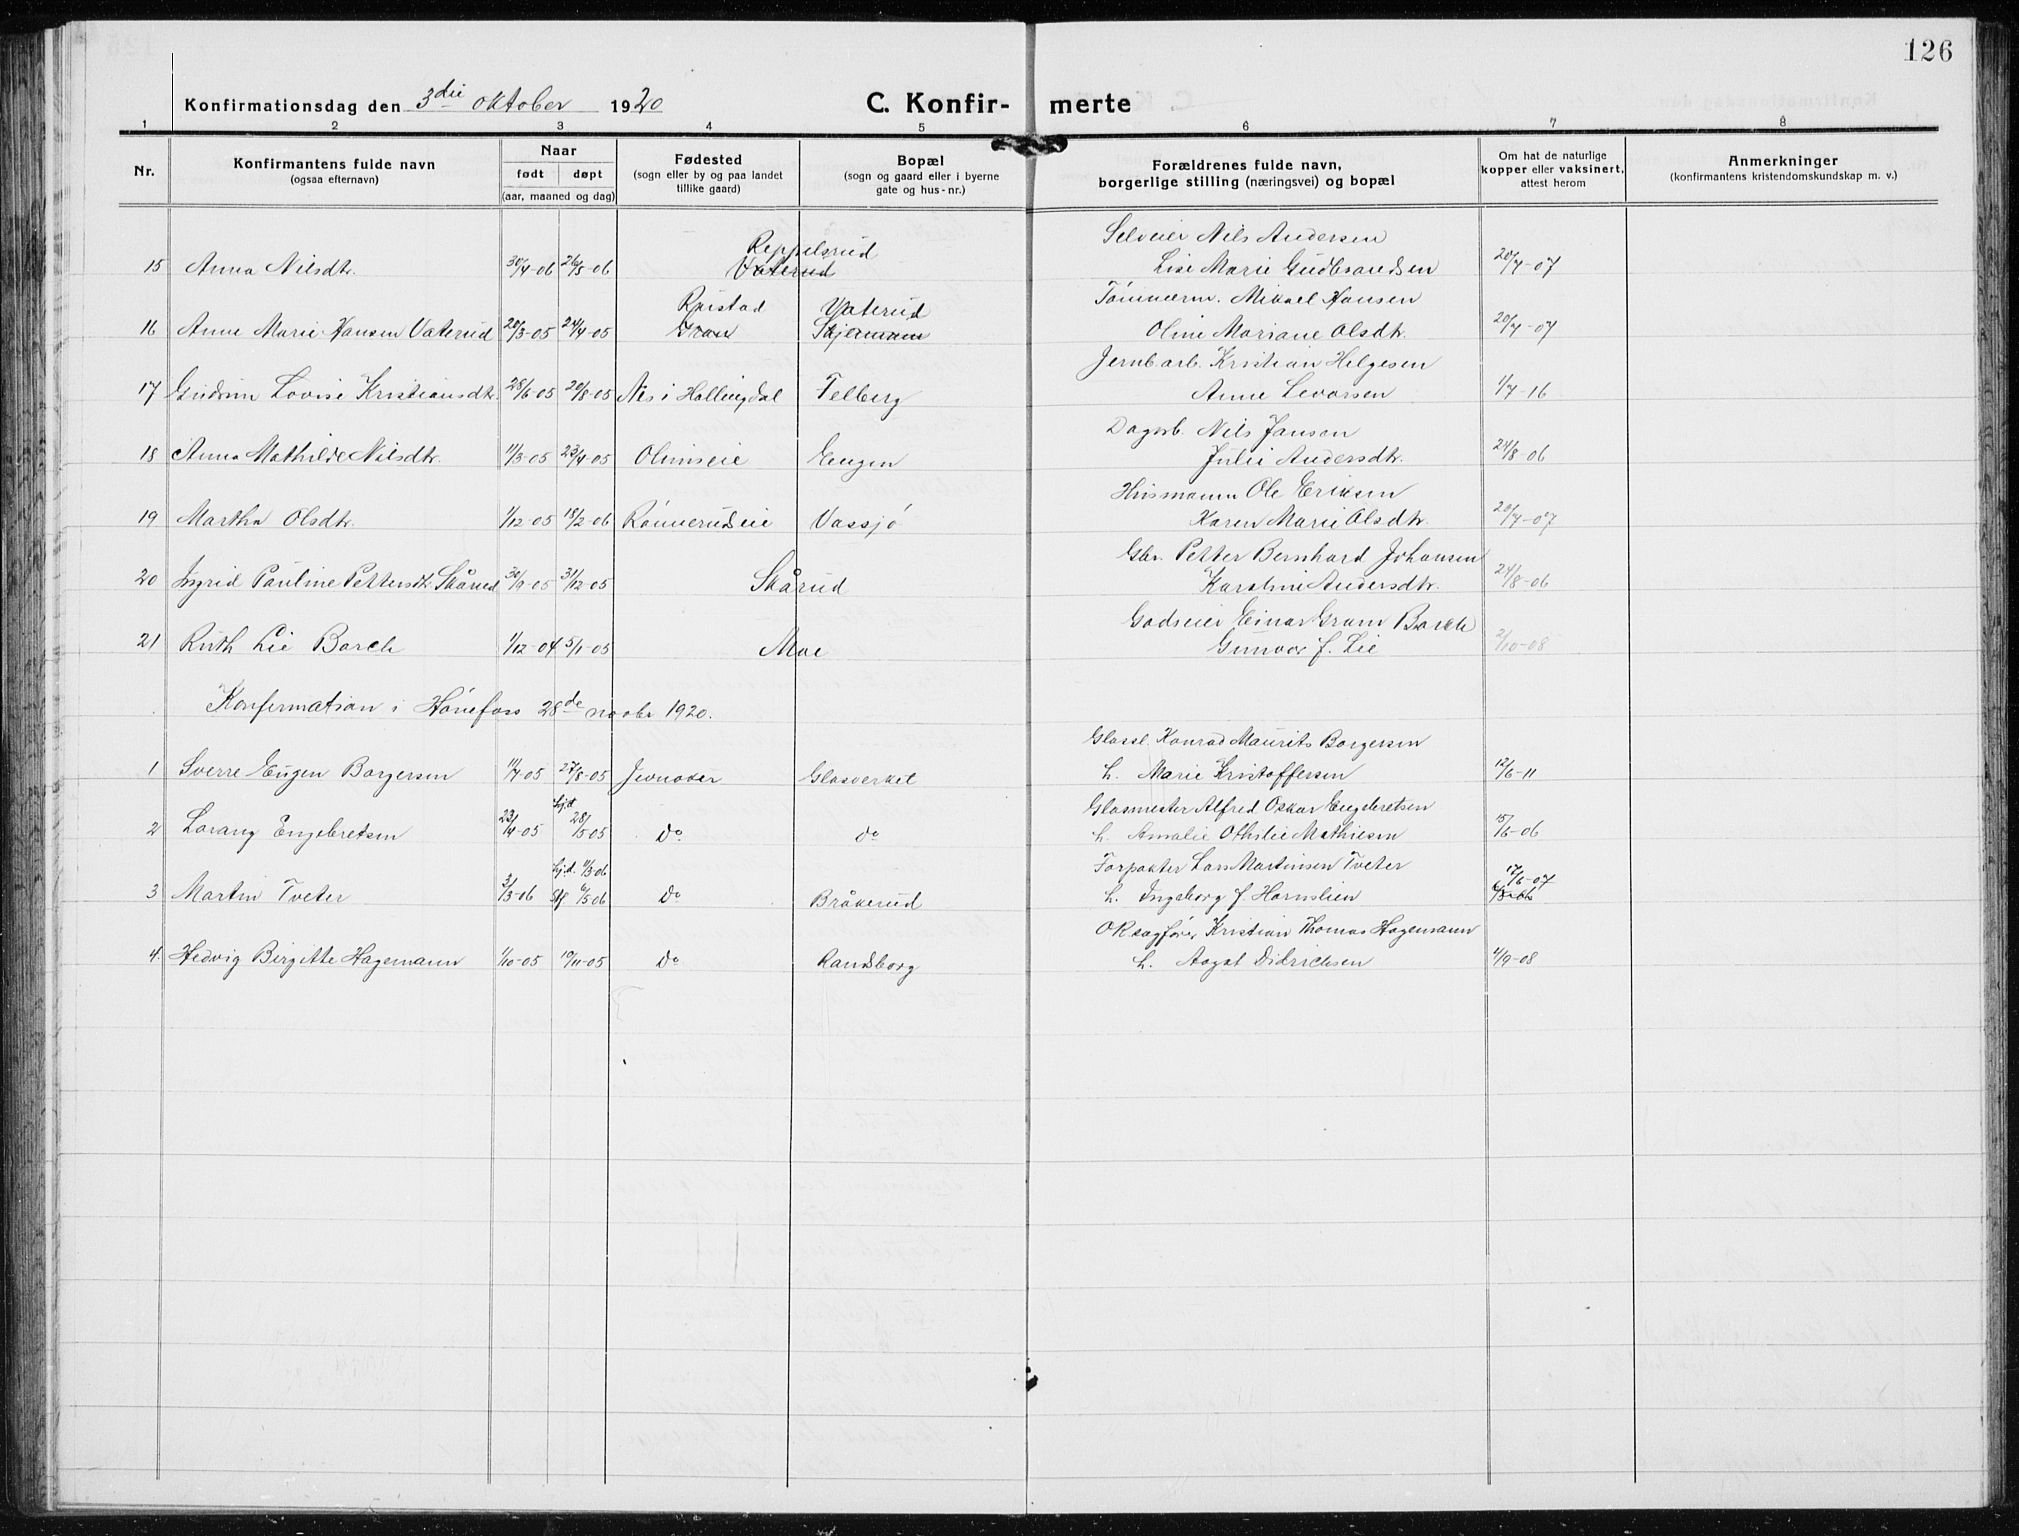 126
Konfirmationsdag den 3die oktober 1920 C. Konfirmerte
1 2 3 4 5 6 7 8
Nr. Konfirmantens fulde navn (ogsaa efternavn) Naar født døpt (aar, maaned og dag) Fødested (sogn eller by og paa landet tillike gaard) Bopæl (sogn og gaard eller i byerne gate og hus-nr.) Forældrenes fulde navn, borgerlige stilling (næringsvei) og bopæl Om hat de naturlige kopper eller vaksinert, attest herom Anmerkninger (konfirmantens kristendomskundskap m. v.)
Reppelsrud Selveier Nils Andersen
15 Anna Nilsdtr. 30/4-06 26/8-06 Vaterud Lise Marie Gudbrandsen 20/7-07
Raistad Vaterud Tømmerm. Mikael Hansen
16 Anne Marie Hansen Vaterud 20/3-05 24/4-05 Gran Stjernarn Oline Mariane Olsdtr. 20/7-07
Jernbarb. Kristian Helgesen
17 Gudrun Lovise Kristiansdtr. 28/6-05 20/8-05 Nes i Hallingdal Felberg Anne Levorsen 1/7-16
Dagarb. Nils Jansen
18 Anna Mathilde Nilsdtr. 11/3-05 23/4-05 Olimseie Engen Julie Andersdtr. 24/8-06
Husmann Ole Eriksen
19 Martha Olsdtr. 1/12-05 18/2-06 Rønnerudeie Vassjø Karen Marie Olsdtr. 20/7-07
Gbr. Petter Bernhard Johansen
20 Ingrid Pauline Pettersdtr. Skårud 30/9-05 31/12-05 Skårud Karoline Andersdtr. 24/8-06
Godseier Einar Gram Borch
21 Ruth Lie Borch 1/12-04 5/1-05 Moe Gunvor f. Lie 2/10-08
Konfirmation i Hönefoss 28de novbr 1920.
Glassl. Konrad Maurits Borgersen
1 Sverre Eugen Borgersen 11/7-05 27/8-05 Jevnaker Glasverket h. Marie Kristoffersen 12/6-11
hj.d. Glasmester Alfred Oskar Engebretsen
2 Lorang Engebretsen 23/4-05 28/5-05 Do do h. Amalie Othilie Mathiesen 15/6-06
hj.d. 11/3-06 Forpakter Lars Martinsen Tveter 17/6-07
3 Martin Tveter 3/3-06 Stf 6/5-06 Do Bråkerud h. Ingeborg f. Hornslien
ORsagfører Kristian Thomas Hagemann
4. Hedvig Birgitte Hagemann 1/10-05 19/11-05 Do Randsborg h. Aagot Didrichsen 4/9-08